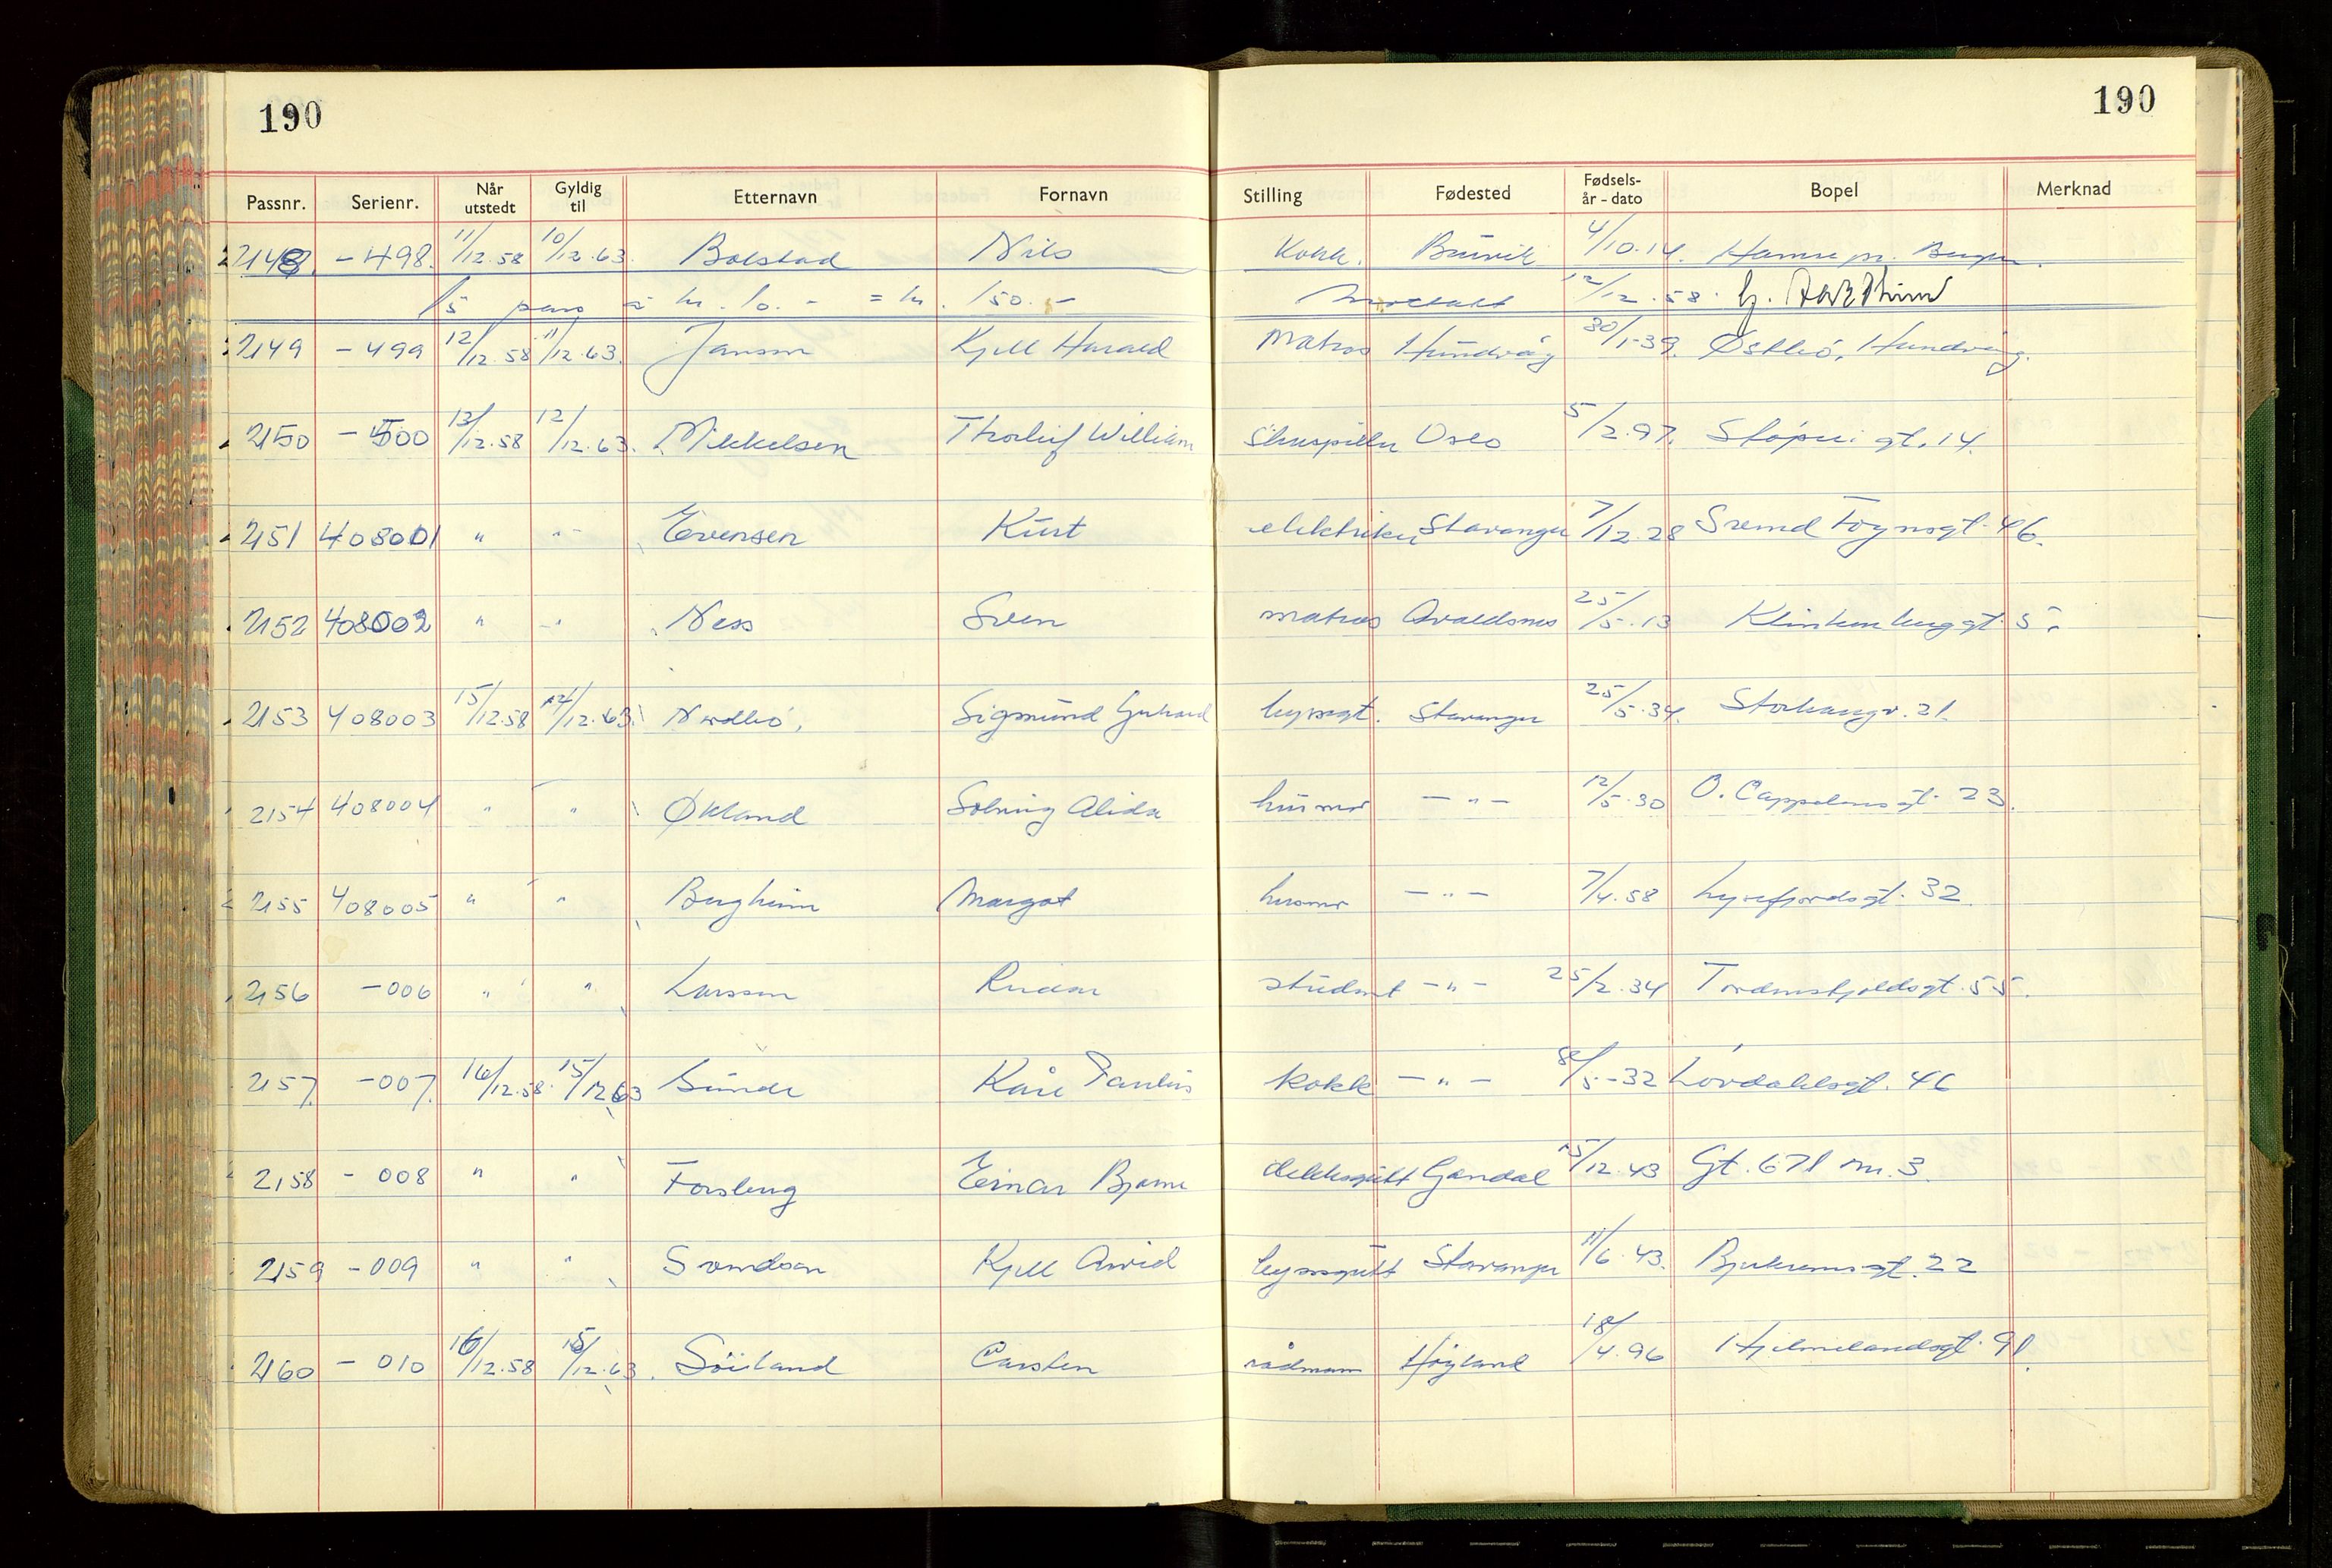 190 190
Passnr. Serienr. Når utstedt Gyldig til Etternavn Fornavn Stilling Fødested Fødsels-år - dato Bopel Merknad
2148 - 498. 11/12.58 10/12.63. Bolstad Nils Kokk. Bruvik 4/10.14. Hamre pr. Bergen.
15 pass à kr. 10.- = kr. 150.- Mottatt 12/12.58.
2149 - 499 12/12.58 11/12.63. Jansen Kjell Harald Matros Hundvåg 30/1-39. Østbø, Hundvåg.
2150 - 500 13/12.58 12/12.63. Mikkelsen Thorleif William skuespiller Oslo 5/2.97. Støperigt. 14.
2151 408001 " " Evensen Kurt elektriker Stavanger 7/12.28 Svend Foynsgt. 46.
2152 408002 " " Ness Sven matros Avaldsnes 25/5.13 Klinkenberggt. 5
2153 408003 15/12.58 14/12.63. Nordbø, Sigmund Gerhard byssegt. Stavanger 25/5.34. Storhaugv. 21.
2154 408004 " " Økland Solveig Alida husmor - " - 12/5.30 O. Cappelensgt. 23.
2155 408005 " " Bergheim Margot husmor - " - 7/4.58 Lysefjordsgt. 32.
2156 - 006 " " Larsen Reidar student - " - 25/2.34 Tordenskjoldsgt. 55.
2157. - 007. 16/12.58. 15/12 63 Sunde Kåre Paulus kokk - " - 8/5-32 Løvdahlsgt. 46
2158 - 008 " " Forsberg Einar Bjarne dekksgutt Gandal 25/12.43 Gt. 671 nr. 3.
2159 - 009 " " Svendsen Kjell Arvid byssegutt Stavanger 11/6.43. Bjerkreimsgt. 22
2160 - 010 16/12.58 15/12.63. Söiland Carsten rådmann Høyland 18/4.96 Hjelmelandsgt. 91.